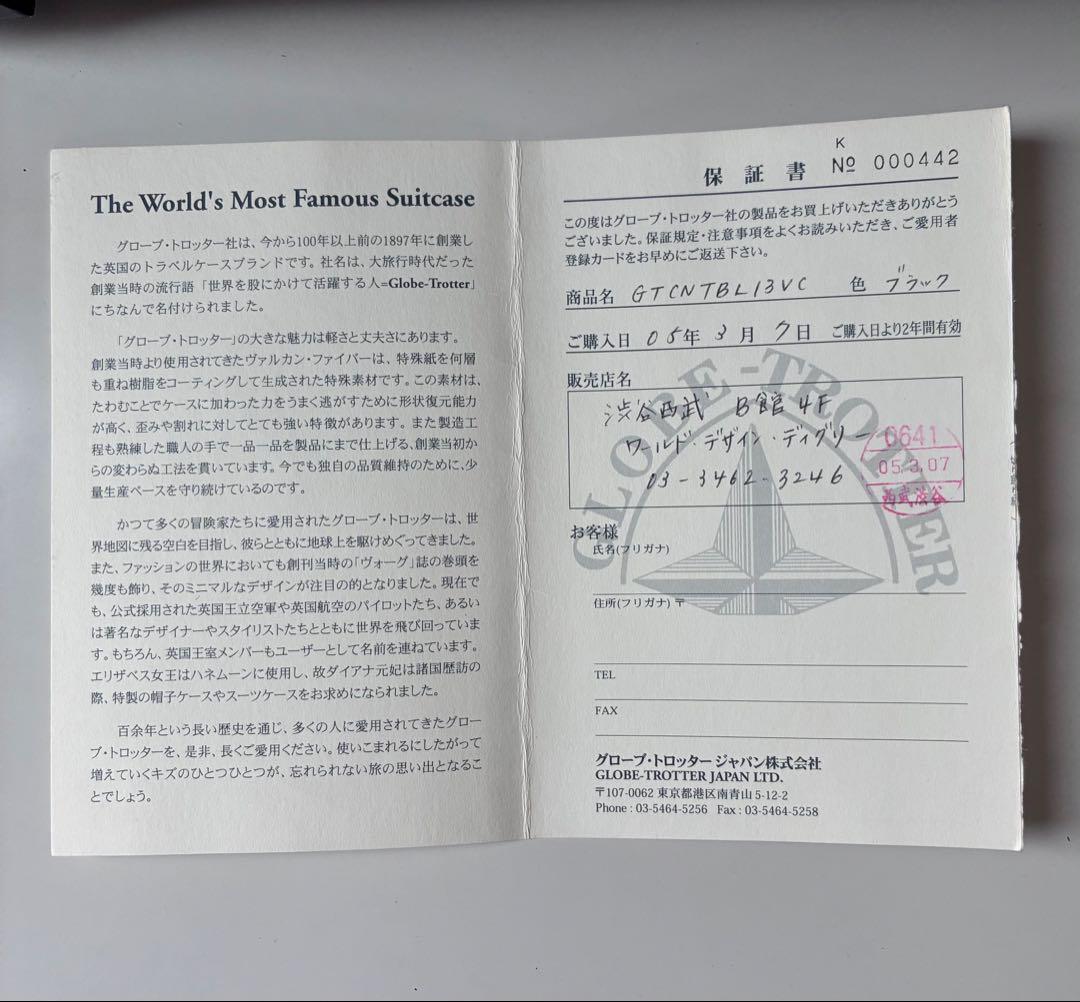 The World's Most Famous Suitcase
グローブ・トロッター社は、今から100年以上前の1897年に創業し
た英国のトラベルケースブランドです。社名は、大旅行時代だった
創業当時の流行語「世界を股にかけて活躍する人=Globe-Trotter」
にちなんで名付けられました。
「グローブ・トロッター」の大きな魅力は軽さと丈夫さにあります。
創業当時より使用されてきたヴァルカン・ファイバーは、特殊紙を何層
も重ね樹脂をコーティングして生成された特殊素材です。この素材は、
たわむことでケースに加わった力をうまく逃がすために形状復元能力
が高く、歪みや割れに対してとても強い特徴があります。また製造工
程も熟練した職人の手で一品一品を製品にまで仕上げる、創業当初か
らの変わらぬ工法を貫いています。今でも独自の品質維持のために、少
量生産ペースを守り続けているのです。
かつて多くの冒険家たちに愛用されたグローブ・トロッターは、世
界地図に残る空白を目指し、彼らとともに地球上を駆けめぐってきました。
また、ファッションの世界においても創刊当時の「ヴォーグ」誌の巻頭を
幾度も飾り、そのミニマルなデザインが注目の的となりました。現在で
も、公式採用された英国王立空軍や英国航空のパイロットたち、あるい
は著名なデザイナーやスタイリストたちとともに世界を飛び回っていま
す。もちろん、英国王室メンバーもユーザーとして名前を連ねています。
エリザベス女王はハネムーンに使用し、故ダイアナ元妃は諸国歴訪の
際、特製の帽子ケースやスーツケースをお求めになられました。
百余年という長い歴史を通じ、多くの人に愛用されてきたグロー
ブ・トロッターを、是非、長くご愛用ください。使いこまれるにしたがって
増えていくキズのひとつひとつが、忘れられない旅の思い出となるこ
とでしょう。
K
保証書 № 000442
この度はグローブ・トロッター社の製品をお買上げいただきありがとう
ございました。保証規定・注意事項をよくお読みいただき、ご愛用者
登録カードをお早めにご返送下さい。
商品名 GTCNTBL13VC 色 ブラック
ご購入日 05年 3月 7日 ご購入日より2年間有効
販売店名
渋谷西武 B館4F
ワールド・デザイン・ディグリー
03-3462-3246
0641
05.3.07
西武渋谷
GLOBE-TROTTER
お客様
氏名(フリガナ)
住所(フリガナ) 〒
TEL
FAX
グローブ・トロッター ジャパン株式会社
GLOBE-TROTTER JAPAN LTD.
〒107-0062 東京都港区南青山 5-12-2
Phone : 03-5464-5256 Fax : 03-5464-5258